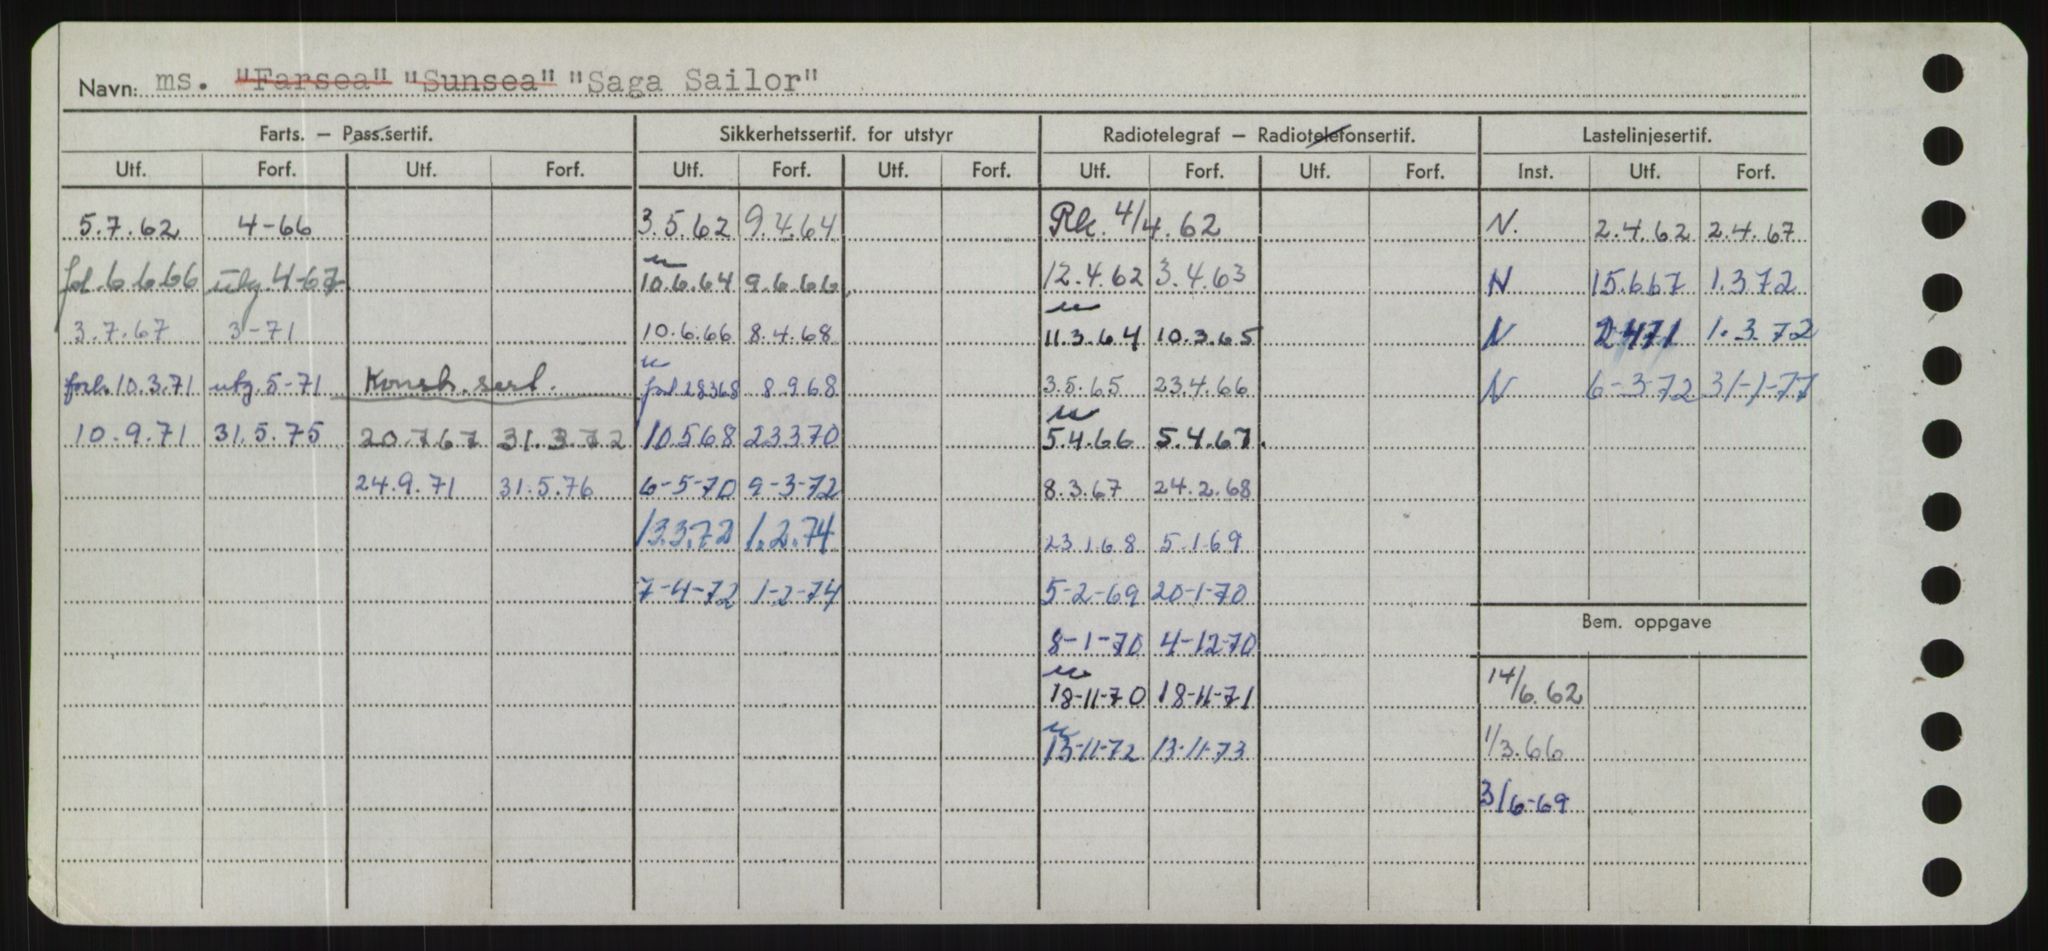 Navn: ms. "Farsea" "Sunsea" "Saga Sailor"
Farts. — Pass.sertif. Sikkerhetssertif. for utstyr Radiotelegraf — Radiotelefonsertif. Lastelinjesertif.
Utf. Forf. Utf. Forf. Utf. Forf. Utf. Forf. Utf. Forf. Utf. Forf. Inst. Utf. Forf.
5.7.62 4-66 3.5.62 9.4.64 Rk. 4/4.62 N. 2.4.62 2.4.67
6.6.66 utg. 4-67 10.6.64 9.6.66 12.4.62 3.4.63 N 15.6.67 1.3.72
3.7.67 3-71 10.6.66 8.4.68 11.3.64 10.3.65 N 2471 1.3.72
forl. 10.3.71 utg. 5-71 Konstr. sert. 28368 8.9.68 3.5.65 23.4.66 N 6-3-72 31-1-77
10.9.71 31.5.75 20.7.67 31.3.72 10.568 23370 5.4.66 5.4.67.
24.9.71 31.5.76 6-5-70 9-3-72 8.3.67 24.2.68
13.3.72 1.2.74 23.1.68 5.1.69
7-4-72 1-2-74 5-2-69 20-1-70
Bem. oppgave
8-1-70 4-12-70
18-11-70 18-11-71 14/6.62
13-11-72 13-11-73 1/3.66
3/6-69